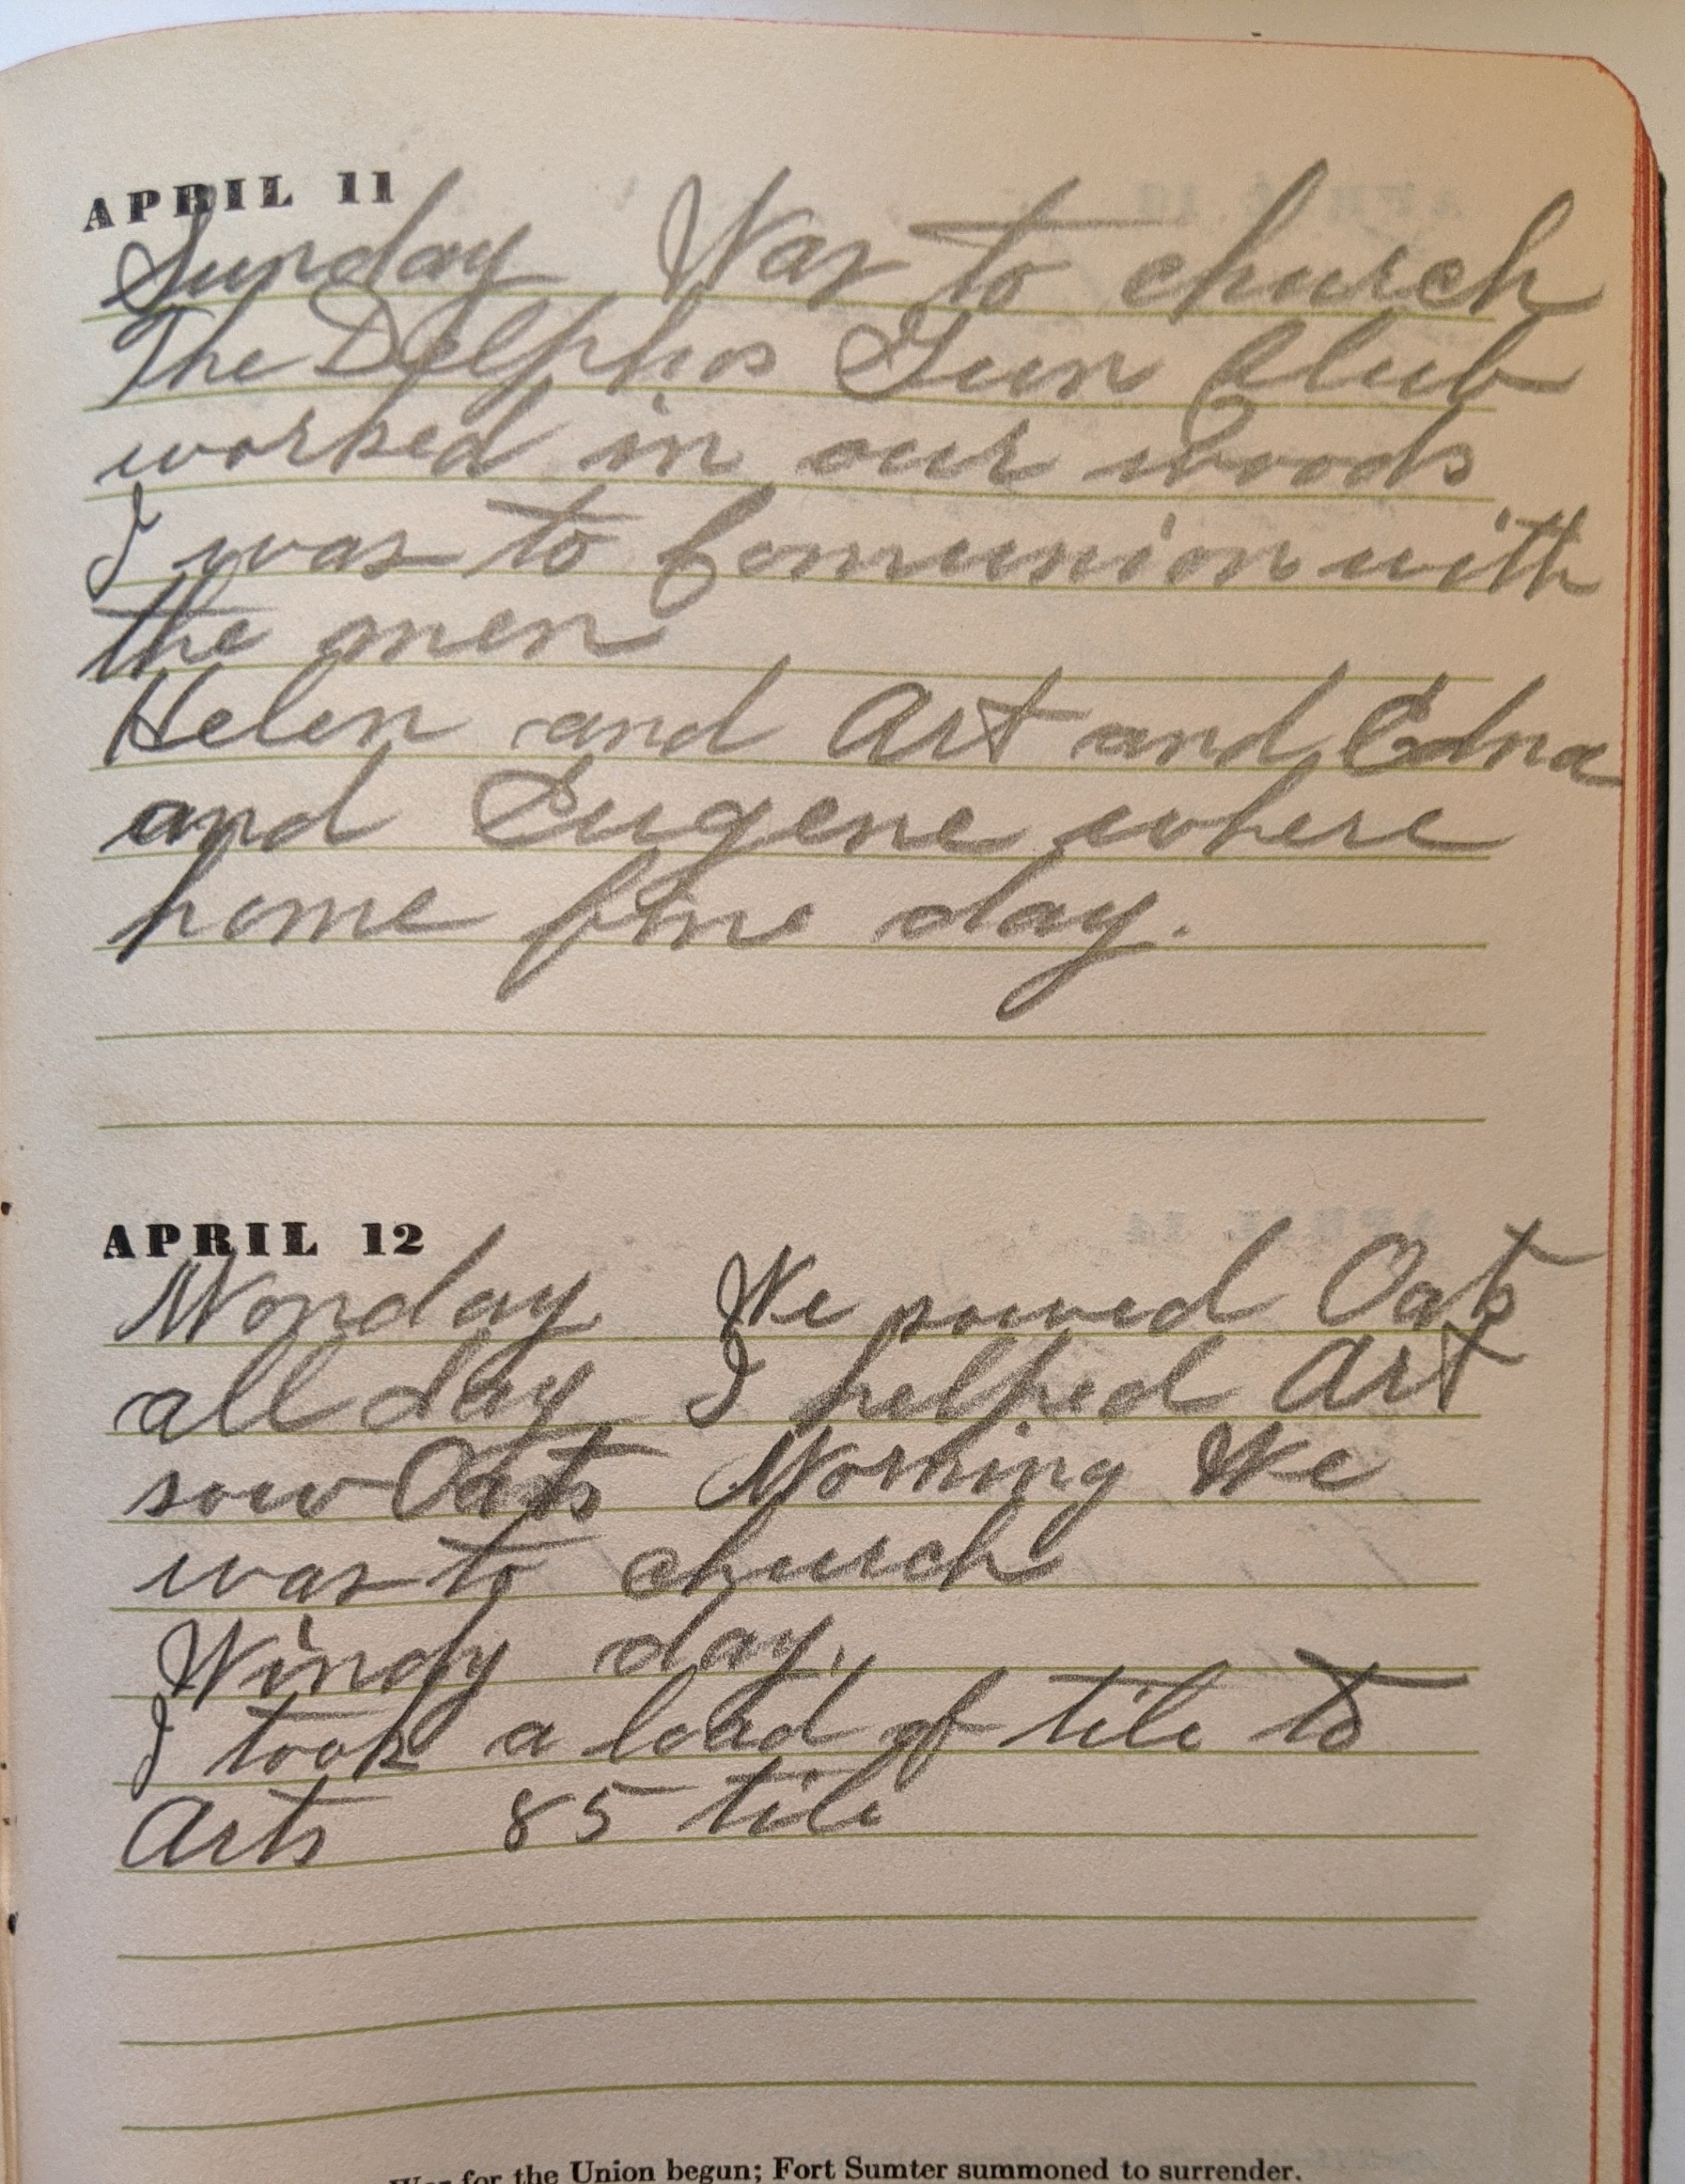 APRIL 11
Sunday Was to church
The Delphos Gun Club
worked in our woods
I was to Comunion with
the men
Helen and Art and Edna
and Eugene where
home fine day.
APRIL 12
Monday We sowed Oats
all day I helped Art
sow Oats Morning We
was to church
Windy day.
I took a load of tile to
Arts 85 tile
War for the Union begun; Fort Sumter summoned to surrender.